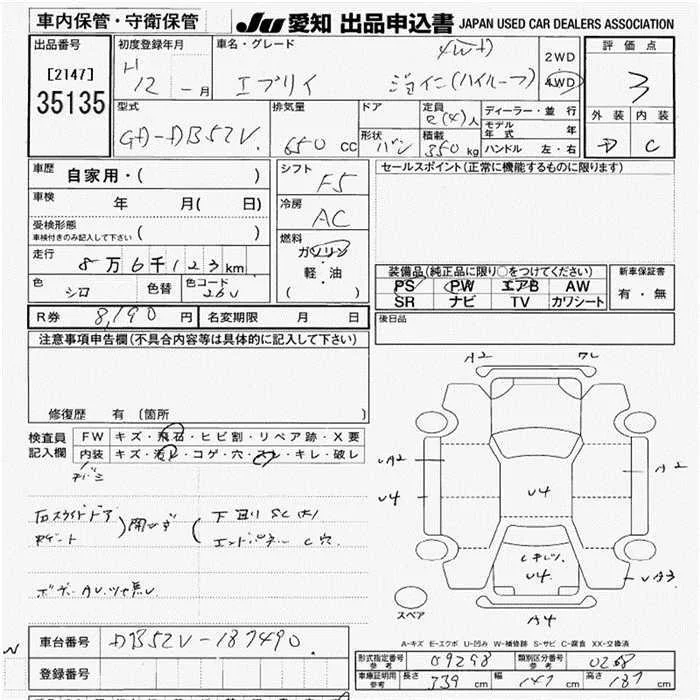 車内保管・守衛保管
JU 愛知 出品申込書 JAPAN USED CAR DEALERS ASSOCIATION
出品番号 初度登録年月 車名・グレード 4WD 2WD 評価点
[2147] H 12 - 月 エブリイ ジョイン(ハイルーフ) 4WD 3
35135
型式 排気量 ドア 定員 2(4)人 ディーラー・並行 外装 内装
GD-DB52V. 650 cc モデル年式 年 D C
形状 バン 積載 350 kg ハンドル 左・右
車歴 自家用・( ) シフト F5 セールスポイント(正常に機能するものに限ります)
車検 年 月( 日) 冷房 AC
受検形態 車検付きのみ記入して下さい ( ) 燃料
走行 8万6千123km ガソリン
軽・油
( )
色 シロ 色替 色コード 26U
装備品(純正品に限り○をつけてください) 新車保証書
PS PW エアB AW 有・無
SR ナビ TV カワシート
R券 8,190 円 名変期限 月 日 後日品
注意事項申告欄(不具合内容等は具体的に記入して下さい)
修復歴 有 (箇所 )
検査員 FW キズ・飛石・ヒビ割・リペア跡・X要
記入欄 内装 キズ・汚レ・コゲ・穴・スレ・キレ・破レ
A2
UA2
A2
U4
U4
U4
UA3
スペア
A4
A-キズ E-エクボ U-凹み W-補修跡 S-サビ C-腐食 XX-交換済
車台番号 DB52V-187490.
登録番号
形式指定番号 参考 09298 類別区分番号 参考
車庫証明用 参考 長さ 339 cm 幅 147 cm 高さ 187 cm